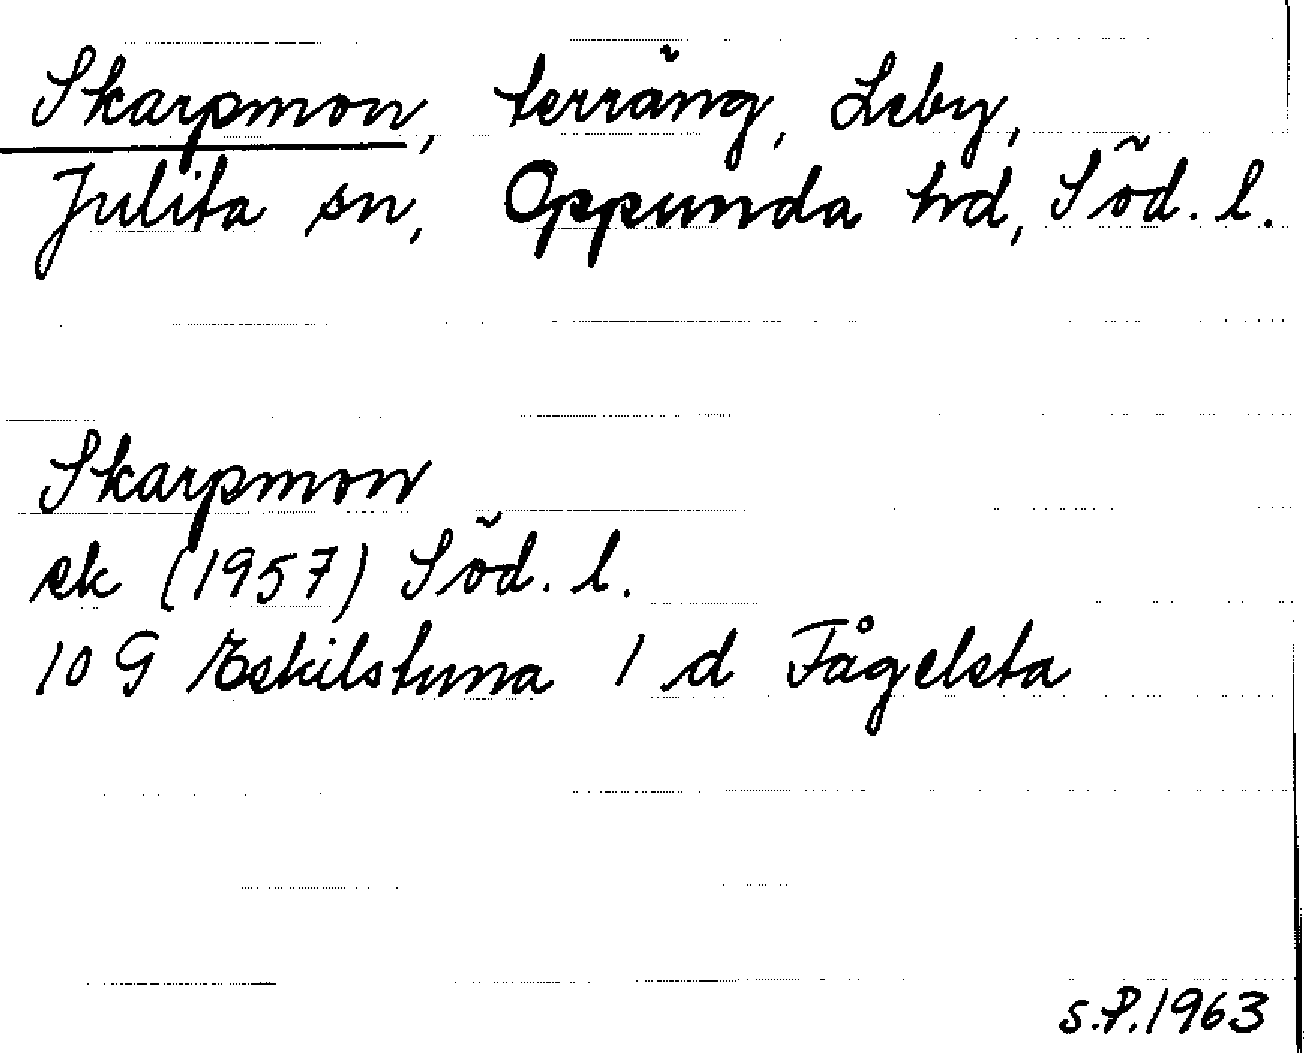 Skarpmon, terräng, Leby,
Julita sn, Oppunda hd, Söd. l.
Skarpmon
ek (1957) Söd. l.
10 G Eskilstuna 1 d Fågelsta
S.P. 1963